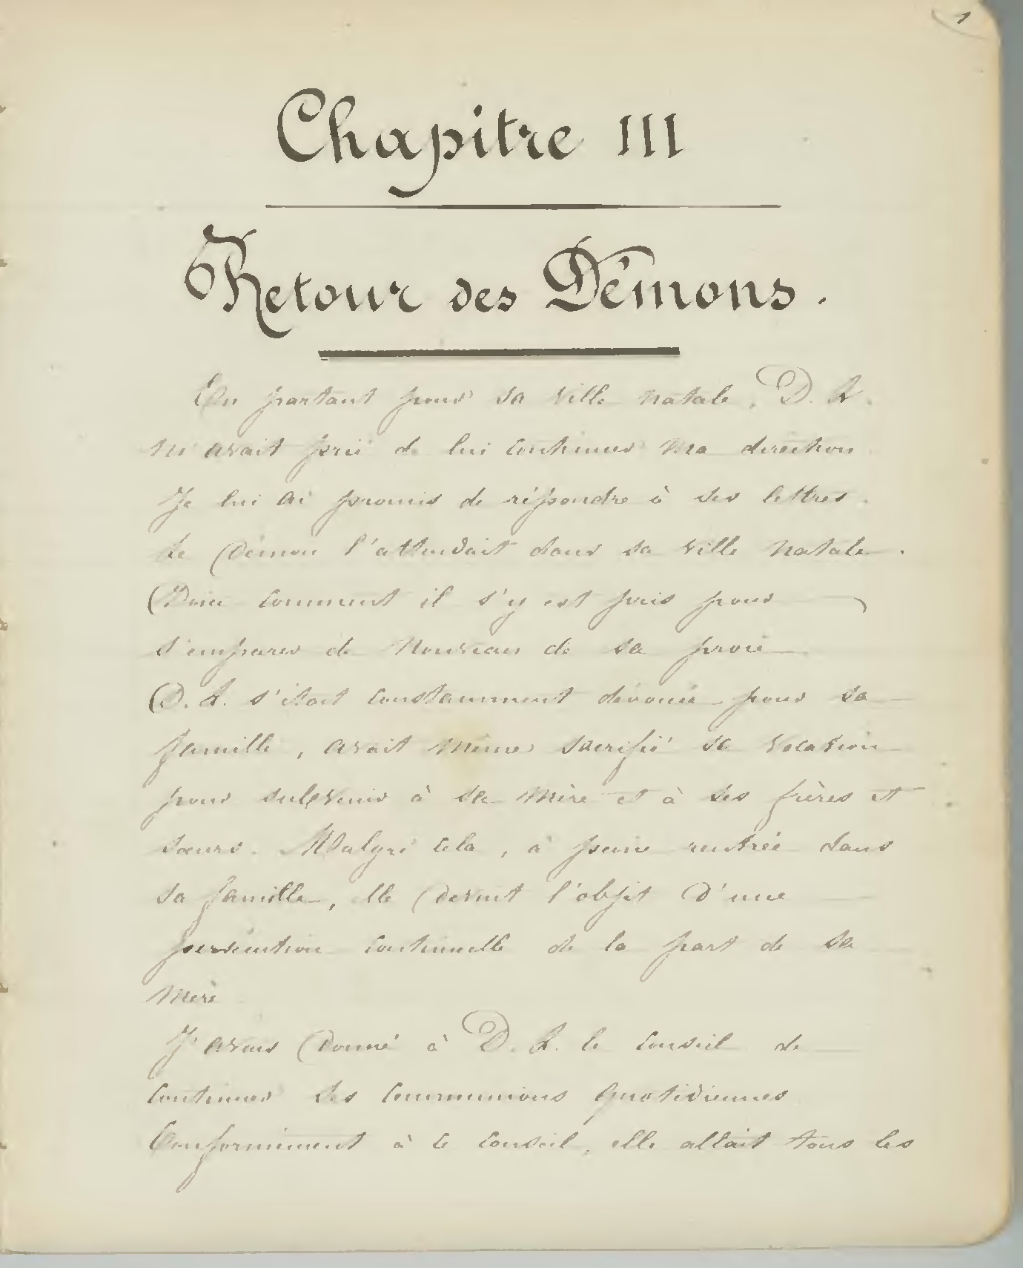 1
Chapitre III
Retour des Démons.
En partant pour sa ville natale, D. L.
m'avait prié de lui continuer ma direction.
Je lui ai promis de répondre à ses lettres.
Le Démon l'attendait dans sa ville natale.
Voici comment il s'y est pris pour
s'emparer de nouveau de sa proie
D. L. s'était constamment dévouée pour sa
famille, avait même sacrifié sa vocation
pour subvenir à sa mère et à ses frères et
sœurs. Malgré cela, à peine rentrée dans
sa famille, elle devint l'objet d'une
persécution continuelle de la part de sa
mère
J'avais donné à D. L. le conseil de
continuer ses communions quotidiennes
Conformément à ce conseil, elle allait tous les